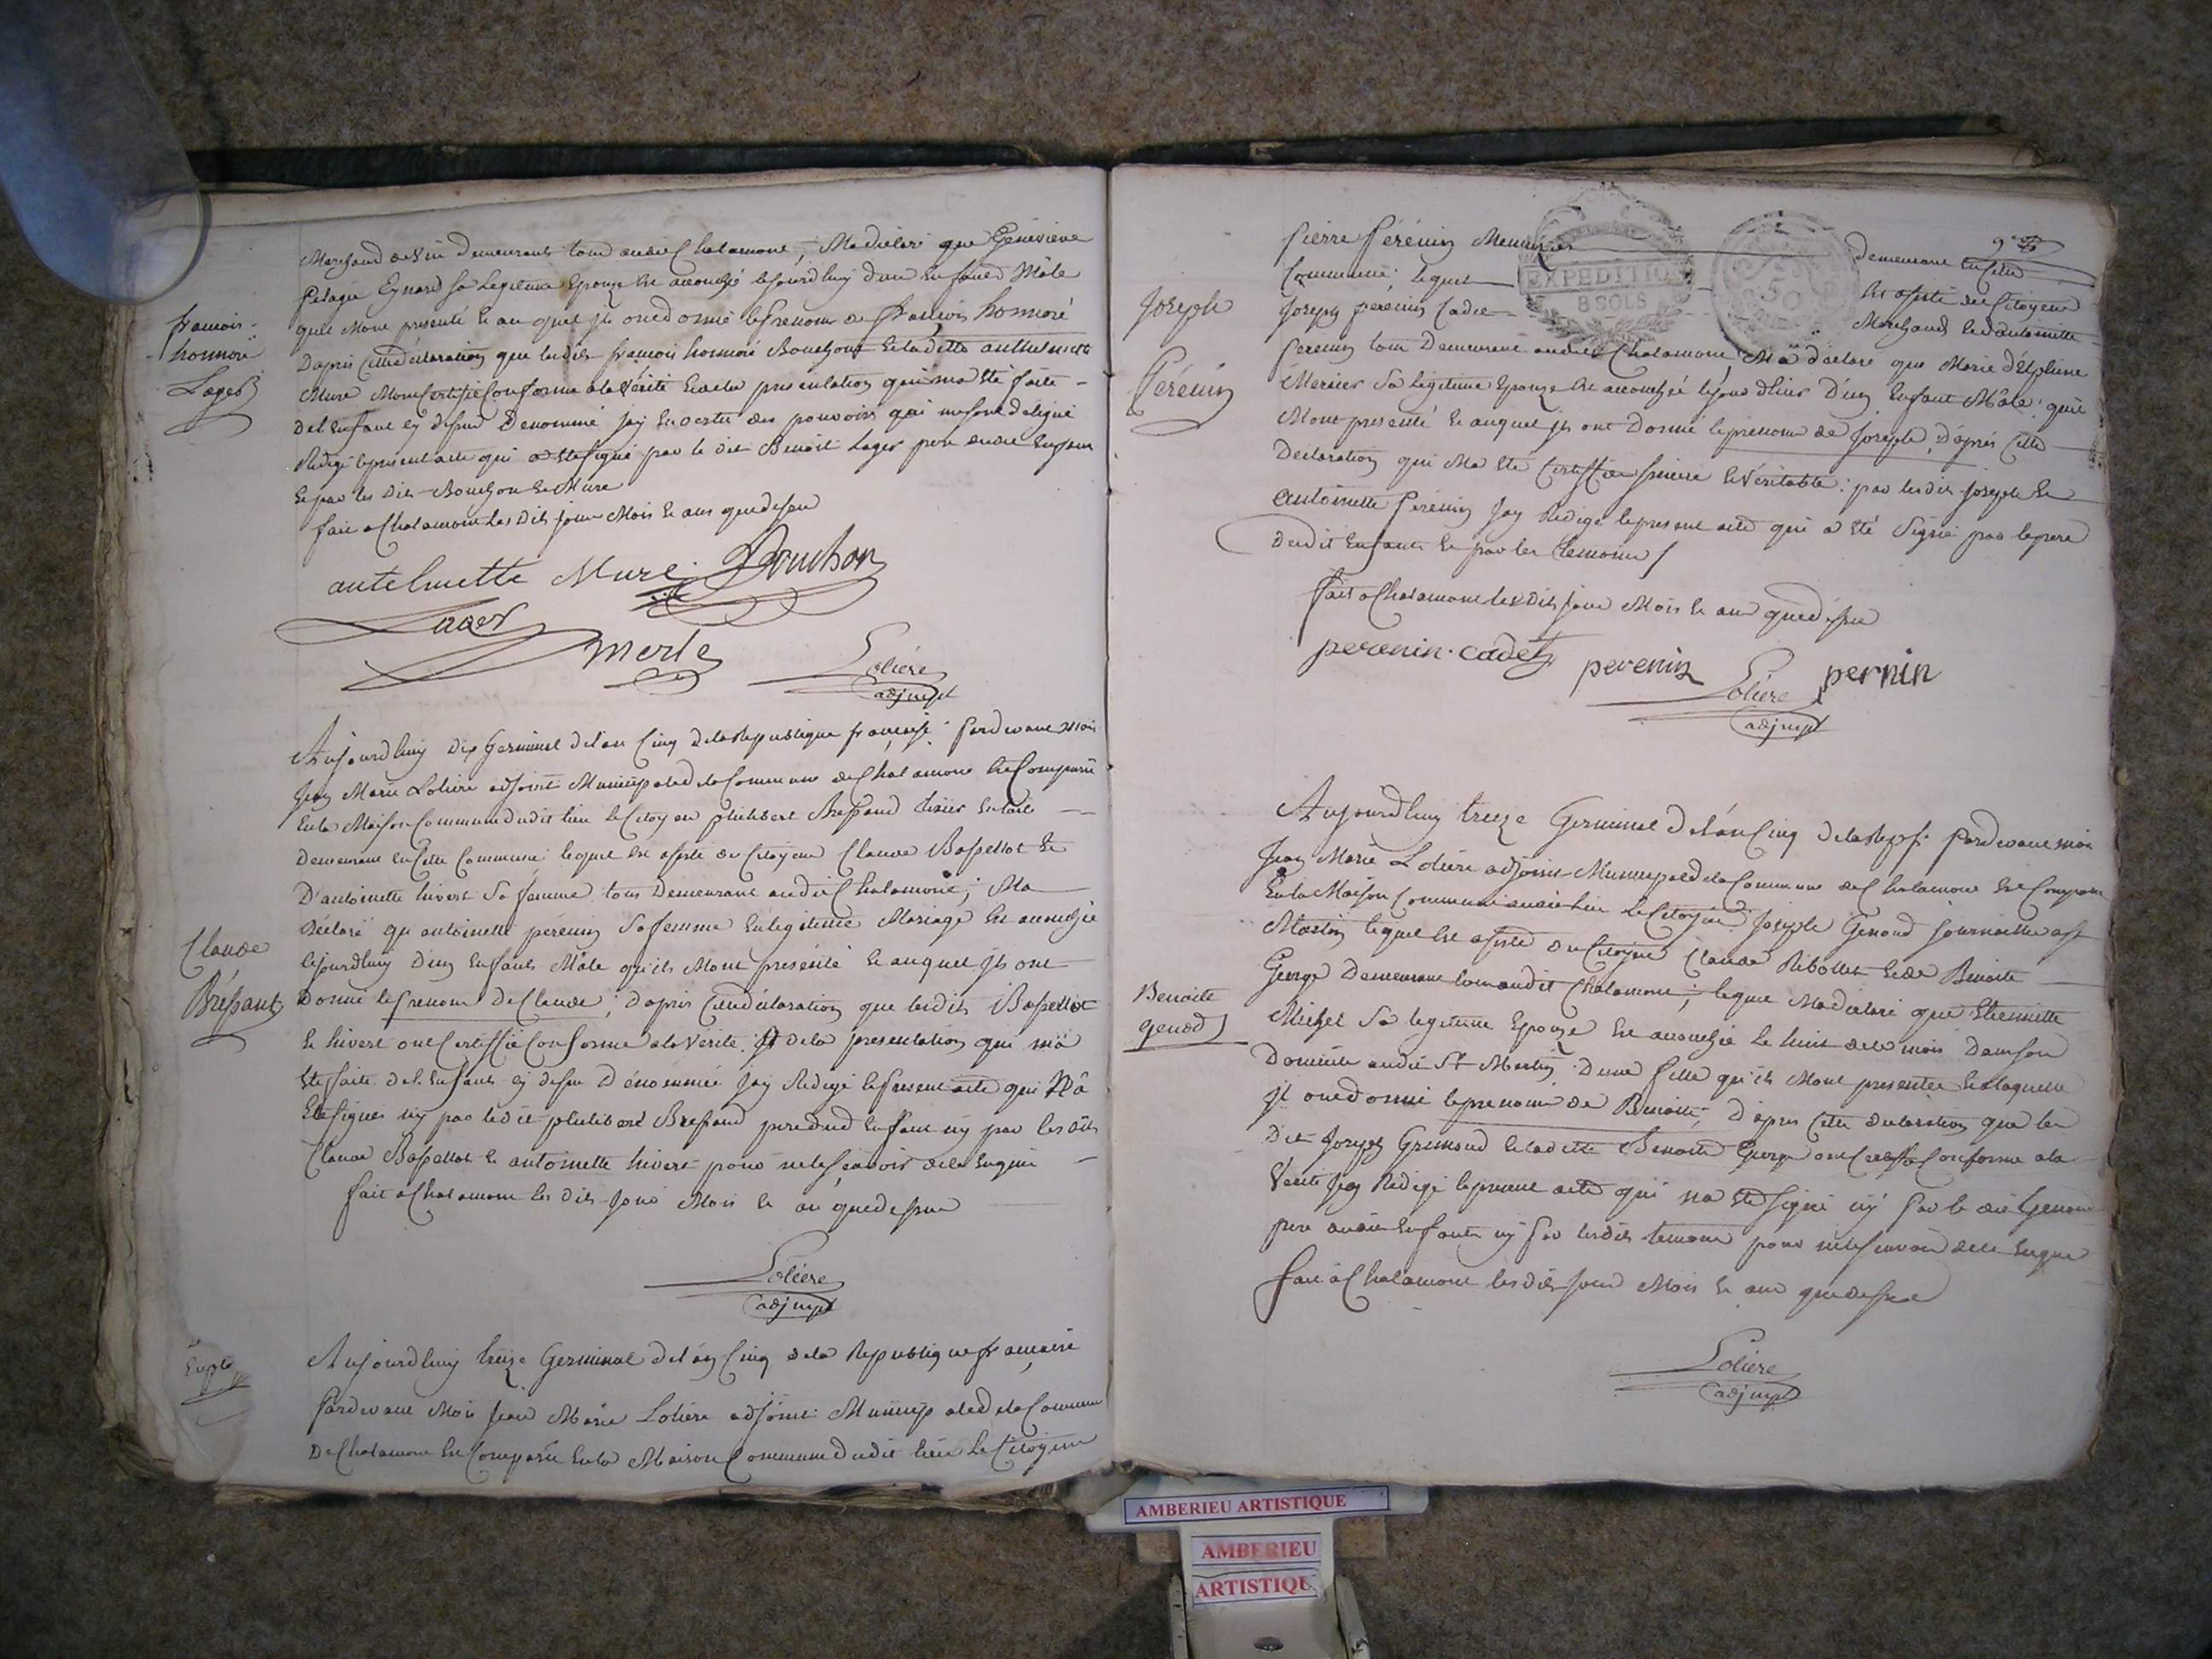 Marchand de vin Demeurants tous audit Chalamont, Ma declaré que Génévieve
Pelagie Eynard sa Legitime Epouze Est accouchée cejourdhuy dun Enfant Mâle
quil Mont presenté Et au quel ils ont donné le Prenom de François honnoré
D'apres Cette déclaration que lesdits françois honnoré Bouchon Et la ditte anthelmette
Mure Mont Certifié Conforme a la Vérité Et de la presentation qui ma été faite
De l'Enfant cy dessus Denommé Jay En vertu des pouvoirs qui me sont delegué
Redigé le present acte qui a été signé par le dit Benoit Lager pere dudit Enfant
Et par les dits Bouchon Et Mure
fait a Chalamont Les Dits jour Mois Et ans que dessus
françois
honnoré
Lager
antelmette Mure Bouchon
Lager
Merle
Loliére
adj mpl
Aujourdhuy dix Germinal de l'an Cinq de la Republique française Pardevant Moi
Jean Marie Loliere adjoint Municipal de la Commune de Chalamont Est Comparu
En la Maison Commune dudit lieu le Citoyen philibert Bressand
Demeurant En Cette Commune lequel Est assisté du Citoyen Claude Bassellot Et
D'antoinette hivert Sa femme tous Demeurant audit Chalamont; Ma
Déclaré qu antoinette perénin Sa femme En legitime Mariage Est accouchée
Cejourdhuy D'un Enfant Mâle qu'ils Mont presenté Et auquel ils ont
Donné le Prenom De Claude; d'apres Cette déclaration que lesdits Bassellot
Et hivert ont Certiffié Conforme a la Vérité Et de la presentation qui mà
Eté faite de l'Enfant cy dessus Dénommé Jay Redigé le present acte qui N'a
Eté signé ny par ledit philibert Bressand pere dud Enfant ny par les dits
Claude Bassellot Et antoinette hivert pour ne le sçavoir de ce Enquis
fait a Chalamont les dits jour Mois Et an que dessus
Claude
Bréssant
Loliere
adj mpl
Aujourdhuy treize Germinal de l'an Cinq de la Republique française
Pardevant Moi Jean Marie Loliére adjoint Municipal de la Commune
De Chalamont Est Comparu En la Maison Commune dudit lieu Le Citoyen
Pierre Pérénin Demeurant En Cette
Commune; lequel Est assisté du Citoyen
Joseph perénin Cadet Marchand Et d'antoinette
Perenin tous Demeurant audit Chalamont, M'a déclaré que Marie Délphine
Mercier Sa légitime Epouze Est accouchée le jour d'hier D'un Enfant Mâle quil
Mont presenté Et auquel ils ont Donné le prenom de Joseph, d'aprés Cette
Déclaration qui Ma Eté Certiffiée sincere Et Véritable par lesdits Joseph Et
antoinette Perénin Jay Redigé le present acte qui a Eté Signé par le pere
dudit Enfant Et par les temoins
fait a Chalamont les dits jour Mois Et an que dessus
EXPEDITION
8 SOLS
50
Joseph
Pérénin
perenin cadet perenin pernin
Loliere
adj mpl
Aujourdhuy treize Germinal de l'an Cinq de la Rep. f. Pardevant moi
Jean Marie Loliére adjoint Municipal de la Commune de Chalamont Est Comparu
En la Maison Commune dudit lieu le Citoyen Joseph Genoud journallier a St
Martin lequel Est assisté du Citoyen Claude Ribollet Et de Benoite
George Demeurant tous audit Chalamont; lequel Ma declaré que Etiennette
Michel Sa legitime Epouze Est accouchée le huit de ce mois Dans son
Domicile audit St Martin D'une fille qu'ils Mont presentée Et a laquelle
Il ont donné le prenom de Benoite; d'apres Cette declaration que les
Dits Joseph Et la ditte Benoite George ont Certiffié Conforme a la
Vérité Jay Redigé le present acte qui na Eté signé ny Par le dit Genoud
pere dudit Enfant ny Par lesdits temoins pour ne le sçavoir de ce Enquis
fait a Chalamont les dits jour Mois Et an que dessus
Benoite
genod
Loliere
adj mpl
AMBERIEU ARTISTIQUE
AMBERIEU
ARTISTIQUE